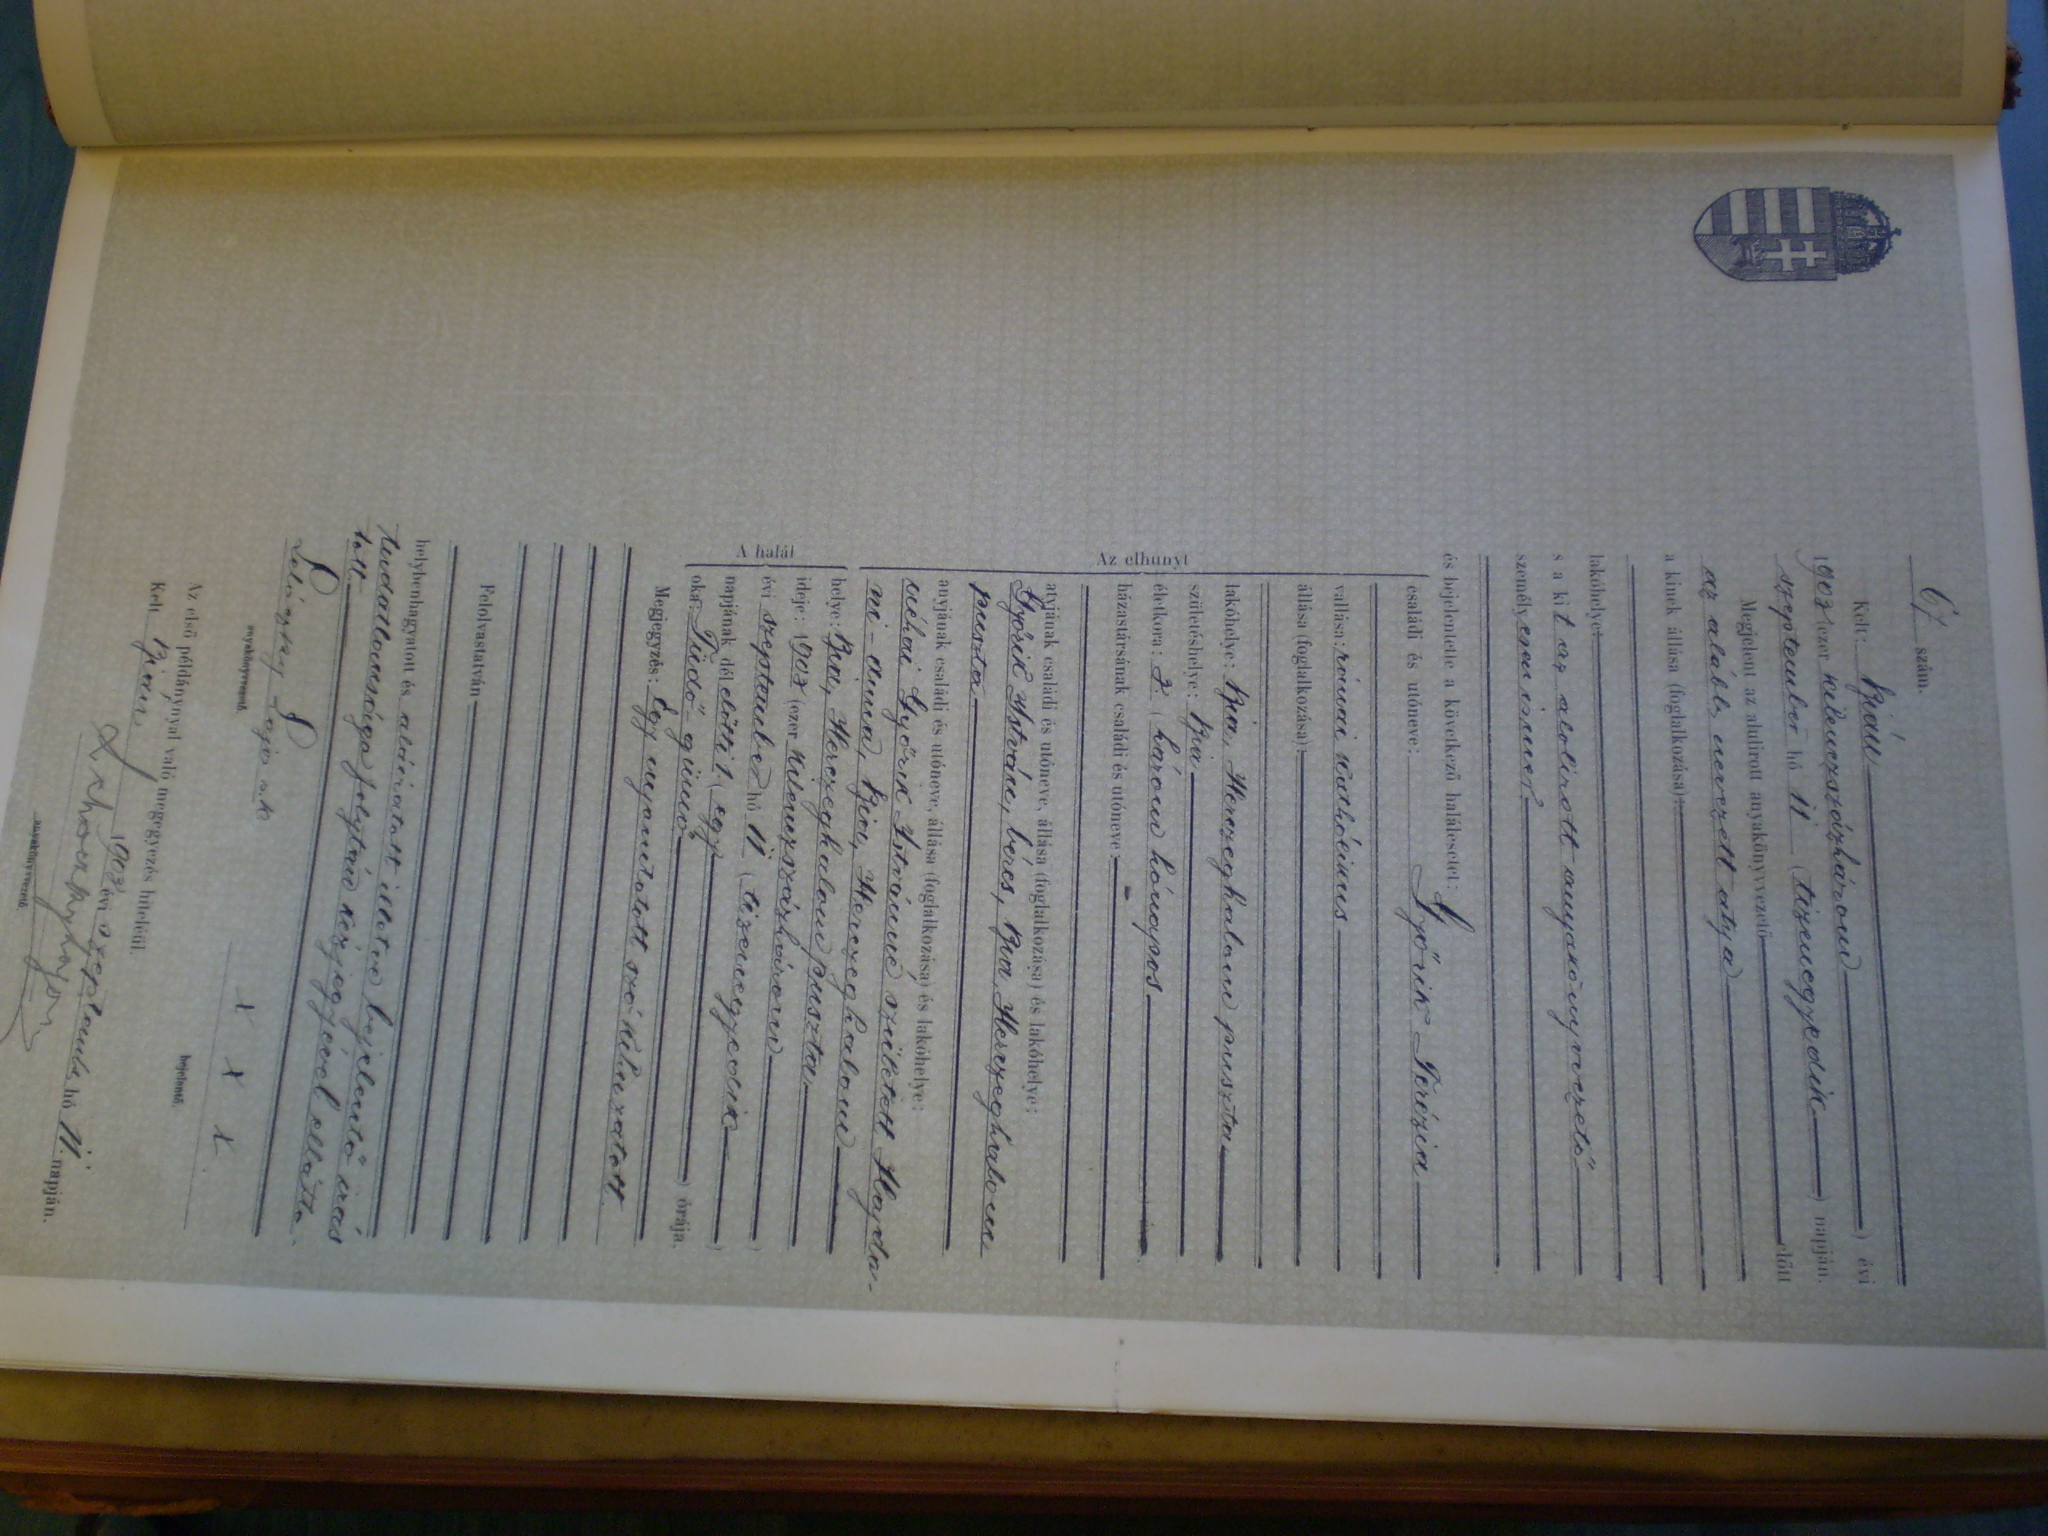 67 szám.
Kelt: Bián
1903 (ezer kilenczszázhárom) évi
szeptember hó 11 (tizenegyedik) napján.
Megjelent az alulirott anyakönyvvezető előtt
az alább nevezett atyja
a kinek állása (foglalkozása):
lakóhelye:
s a kit az alolirott anyakönyvvezető
személyesen ismer
és bejelentette a következő halálesetet:
Az elhunyt
családi és utóneve: Győrik Terézia
vallása: római katholikus
állása (foglalkozása):
lakóhelye: Bia, Herczeghalom puszta
születéshelye: Bia
életkora: 3. (három hónapos)
házastársának családi és utóneve: -
atyjának családi és utóneve, állása (foglalkozása) és lakóhelye:
Győrik István, béres, Bia Herczeghalom
puszta
anyjának családi és utóneve, állása (foglalkozása) és lakóhelye:
néhai Győrik Istvánné született Hajda-
mi-Anna, Bia, Herczeghalom
A halál
helye: Bia, Herczeghalom puszta
ideje: 1903 (ezer kilenczszázhárom)
évi szeptember hó 11 (tizenegyedik)
napjának dél előtti 1 (egy) órája.
oka: Tüdő-gümő
Megjegyzés: Egy nyomtatott szó kihuzatott
Felolvastatván
helybenhagyatott és aláiratott illetve bejelentő irás
tudatlansága folytán kézjegyével ellátta-
tott.
Lajos s.k.
anyakönyvvezető.
x x x
bejelentő.
Az első példánynyal való megegyezés hiteléül.
Kelt Bián, 1903 évi szeptember hó 11. napján.
anyakönyvvezető.